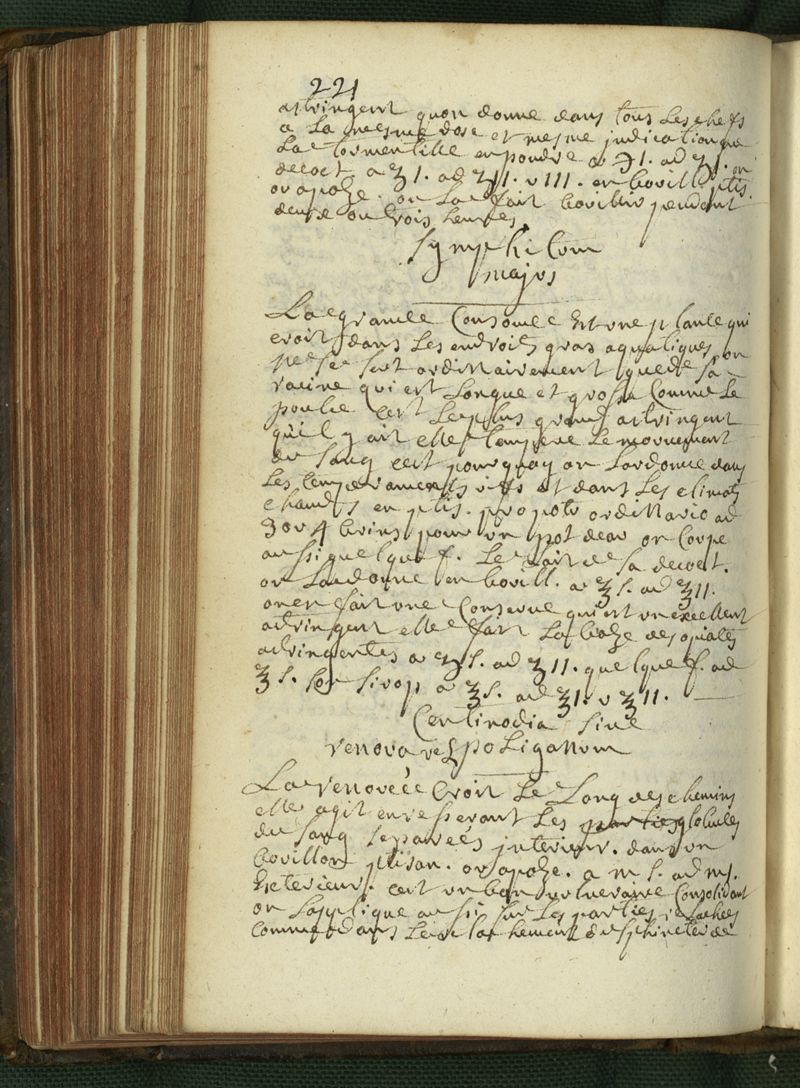 221
astringent quon donne dans tous les chefs
a la mesme dose et mesme indication que
La tormentille en poudre a ℈1. ad ʒ1. en
decoct. a ʒ1. ad ʒ11. v 111. en bovill. ptis.
or apoze. on La fait bovillir pendant
deux ou trois heures
Symphitom
majus
La grande Consoulde Est une plante qui
croit dans Les endroits gras aquatiques on
ne se sert ordinairement que de sa
racine qui est Longue et grosse Comme Le
poulce cest Le plus grand astringent
quil y ait elle tempere Le mouvement
du sang cest pourquoy on Lordonne dans
Les temperaments vifs et dans Les climats
chauds en ptis. pro potu ordinario ad
3 ov 4 brins pour un pot deau on Coupe
aussi quelquef. Le lait de sa decoct.
on La donne en bovill. a ʒs. ad ʒ11.
on en fait une Conserve qui est un excellent
astringent elle fait La baze des opiates
astringentes a ʒs. ad ʒ11. quelquef. ad
℥s. son sirop a ℥s. ad ℥1. v ℥11.
Centinodia sive
renovare Polygonum
La renovée Croit Le Long des chemins
elle agit en resserant Les parties globules
du sang separées interieur. dans un
bovillon ptisan. or apoze. a m s. ad mj.
Exterieur. cest un bon vulneraire Consolidant
on Lapplique aussi sur Les parties relachées
Comme dans Le relachement du sphincter de